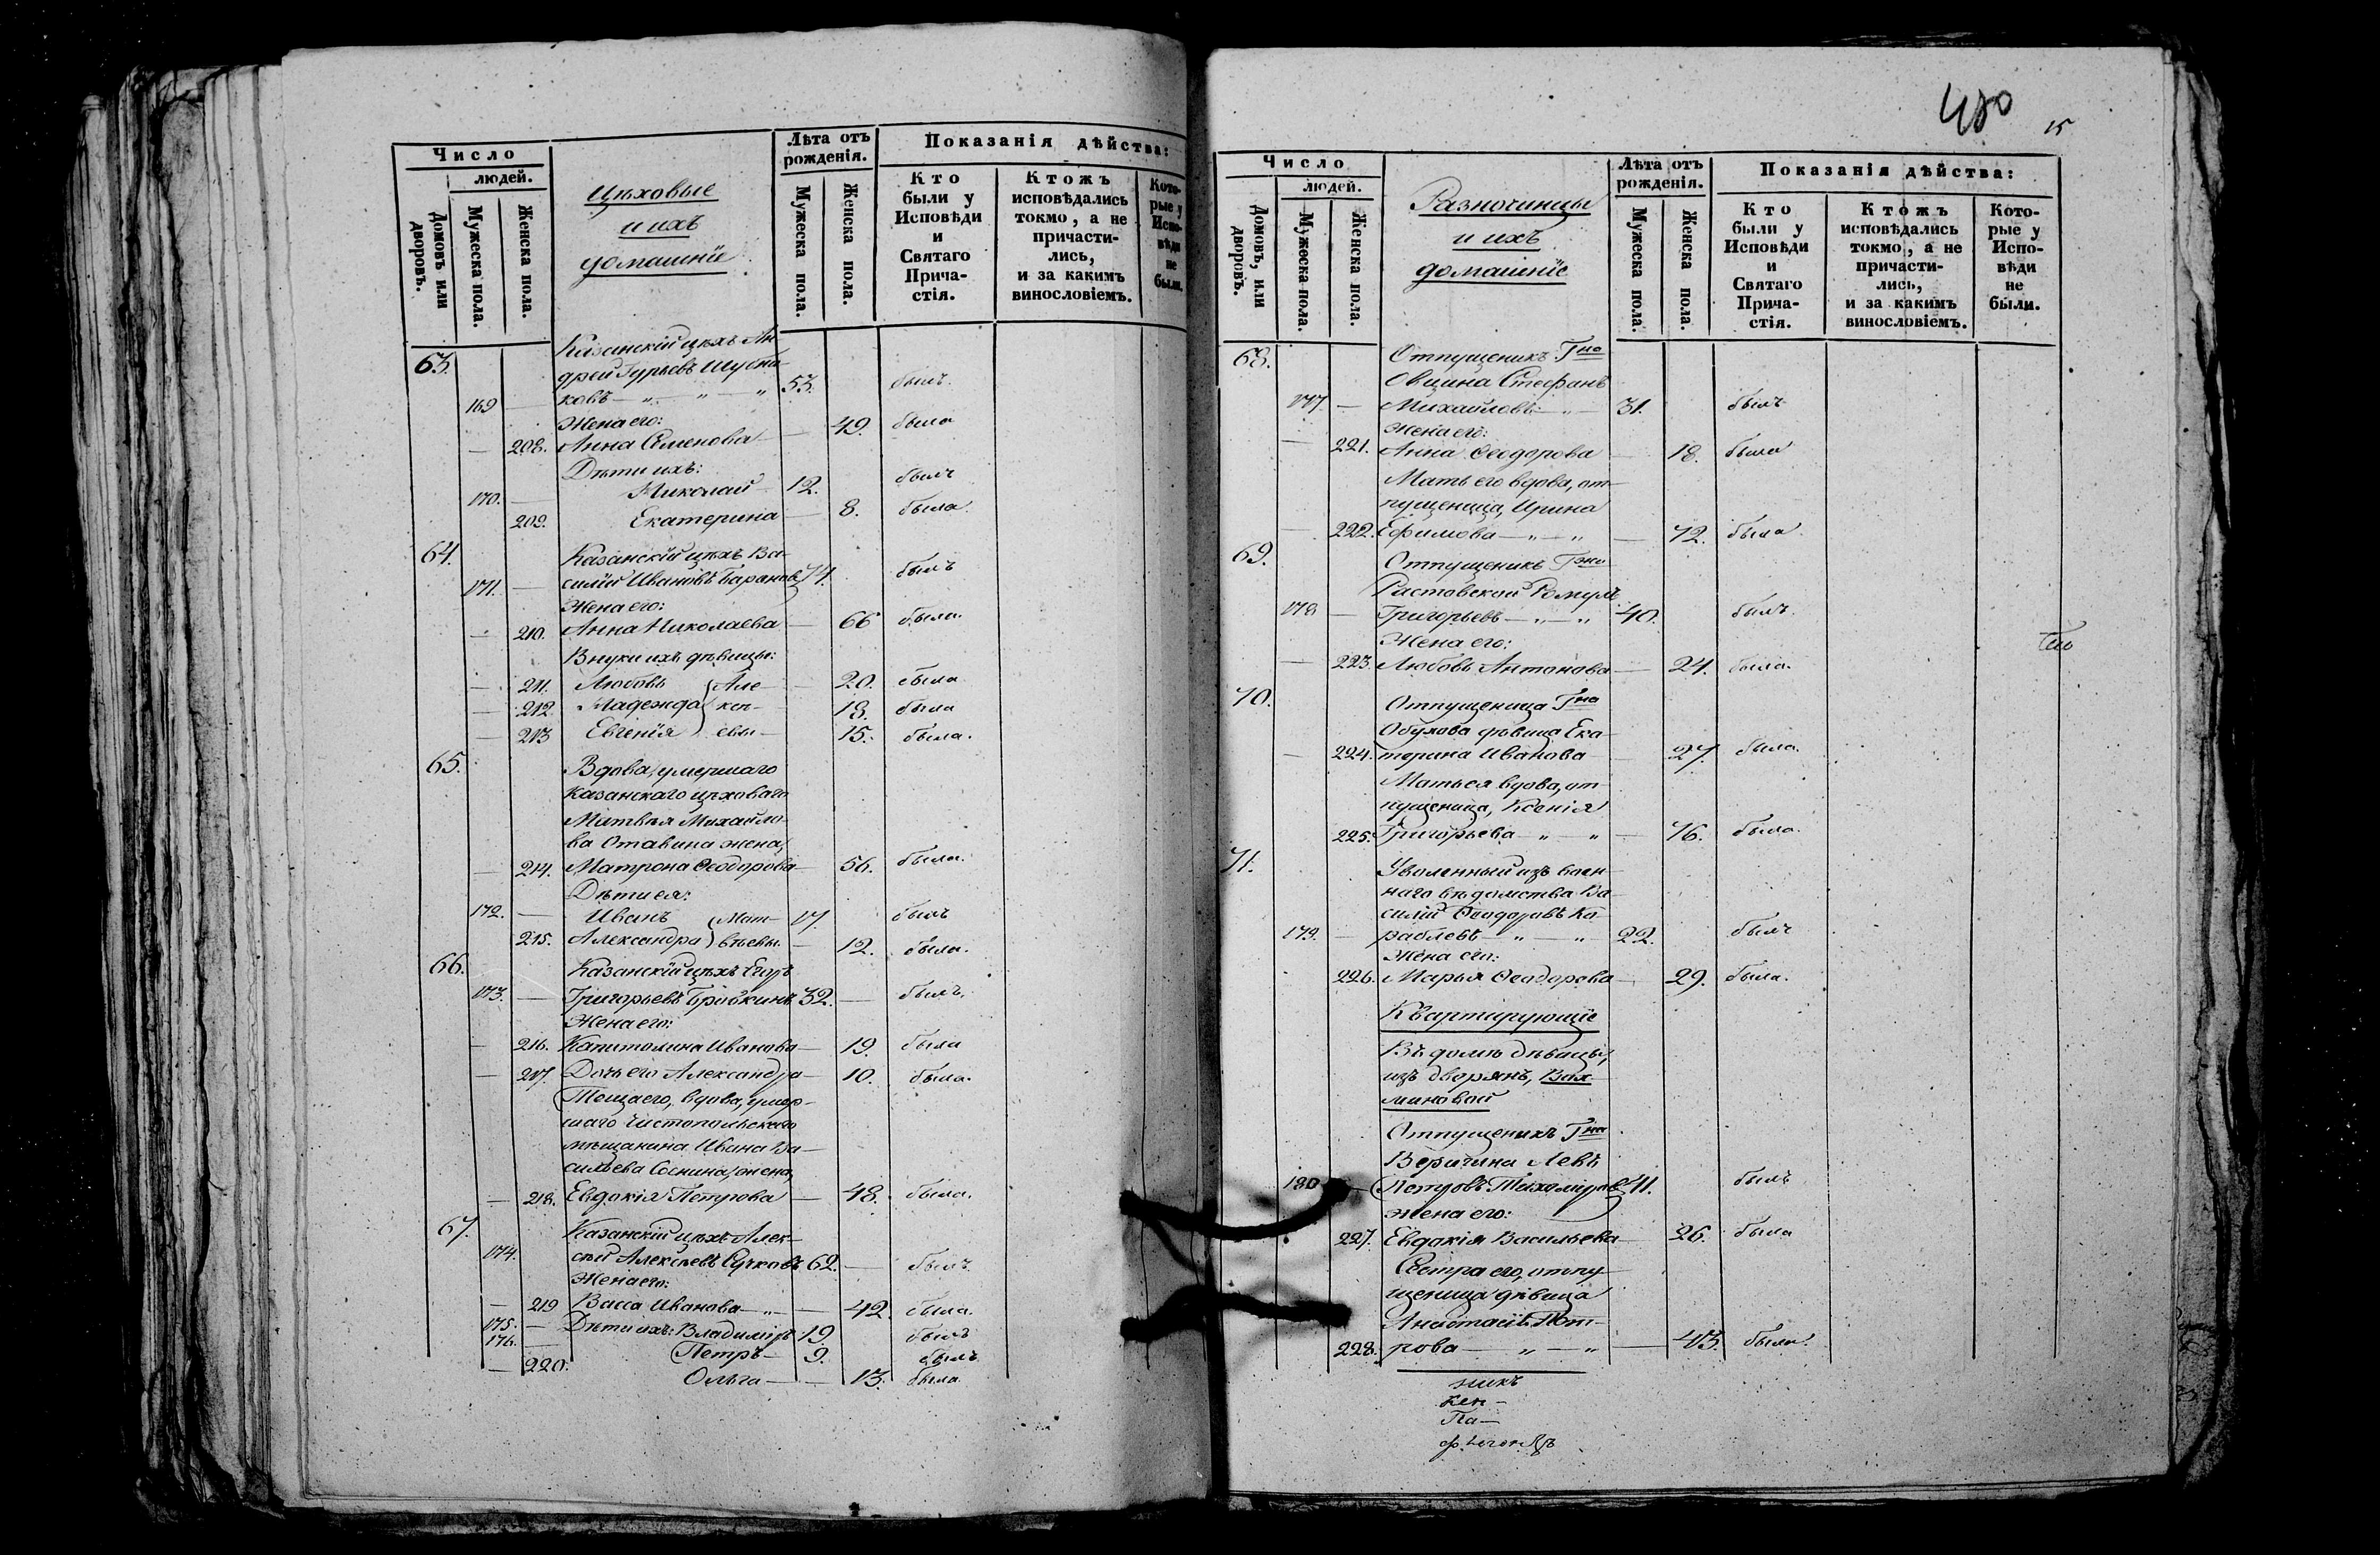 Число
людей.
Домовъ или дворовъ.
Мужеска пола.
Женска пола.
Цѣховые
и ихъ
домашніе
Лѣта отъ рожденія.
Мужеска пола.
Женска пола.
Показанія дѣйства:
Кто были у Исповѣди и Святаго Прича-стія.
Ктожъ исповѣдались токмо, а не причасти-лись, и за какимъ винословіемъ.
Кото-рые у Испо-вѣди не были.
63. Казанскій цѣхъ Ан-
дрей Гурьевъ Шубни-
169 — ковъ — „ — „ 53. былъ.
Жена его:
— 208. Анна Семенова — 49. была
Дѣти ихъ:
170. — Николай — 12. былъ
209. Екатерина — 8. была
64. Казанскій цѣхъ Ва-
171. — силій Ивановъ Барановъ 74. былъ
Жена его:
— 210. Анна Николаева — 66 была.
Внуки ихъ дѣвицы:
— 211. Любовь } Але- — 20. была
— 212. Надежда } ксѣ- 18. была
— 213 Евгенія } евы — 15. была.
65. Вдова, умершаго
Казанскаго цѣховаго
Матвѣя Михайло-
ва Отавина жена,
— 214. Матрона Ѳеодорова — 56. была.
Дѣти ея:
172. — Иванъ } Мат- 17. былъ
215. Александра } вѣевы. — 12. была.
66. Казанскій цѣхъ Егоръ
173. — Григорьевъ Бровкинъ 32. — былъ.
Жена его:
— 216. Капитолина Иванова — 19. была
— 217. Дочь его Александра — 10. была.
Теща его, вдова, умер-
шаго Чистопольскаго
мѣщанина Ивана Ва-
сильева Соснина, жена,
— 218. Евдокія Петрова — 48. была.
67. Казанскій цѣхъ Алек-
174. сѣй Алексѣевъ Сучковъ 62. — былъ
Жена его:
— 219 Васса Иванова — „ — 42. была.
175. — Дѣти ихъ: Владиміръ 19 былъ
176. — Петръ — 9. былъ
— 220. Ольга — — 13. была
480 15
Число
людей.
Домовъ, или дворовъ.
Мужеска пола.
Женска пола.
Разночинцы
и ихъ
домашніе
Лѣта отъ рожденія.
Мужеска пола.
Женска пола.
Показанія дѣйства:
Кто были у Исповѣди и Святаго Прича-стія.
Ктожъ исповѣдались токмо, а не причасти-лись, и за какимъ винословіемъ.
Кото-рые у Испо-вѣди не были.
68. Отпущеникъ Гна
Овцина Стефанъ
177. — Михайловъ — „ — 31. былъ
Жена его:
— 221. Анна Ѳеодорова — 18. была
Мать его вдова, от-
пущеница, Ирина
— 222. Ефимова — „ — „ — 72. была
69. Отпущеникъ Гжи
Растовской
178 — Григорьевъ — „ — „ 40. былъ.
Жена его:
— 223. Любовь Антонова — 24. была.
70. Отпущеница Гна
Обухова дѣвица Ека-
— 224. терина Иванова — 27. была.
Мать ея вдова, от-
пущеница, Ксенія
225. Григорьева — „ — „ — 76. была.
71. Уволенный изъ воен-
наго вѣдомства Ва-
силій Ѳеодоровъ Ко-
179. — раблевъ — „ — „ 22. былъ
Жена его:
226. Марья Ѳеодорова — 29. была.
Квартирующіе
Въ домѣ дѣвицы,
изъ дворянъ,
миновой
Отпущеникъ Гна
Веригина Левъ
180 — Петровъ Тихоміровъ 41. былъ
Жена его:
227. Евдокія Васильева — 26. была
Сестра его, отпу-
щеница дѣвица
Анастасія Пет-
228. рова — „ — „ — 43. была.